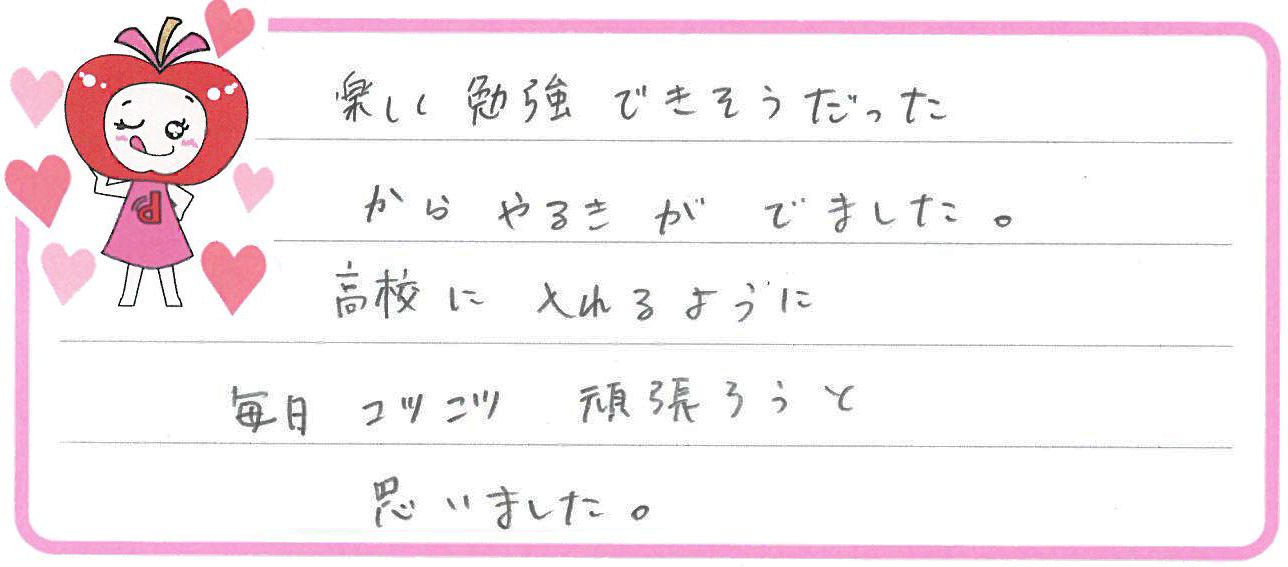 楽しく勉強できそうだった
からやるきがでました。
高校に入れるように
毎日コツコツ頑張ろうと
思いました。